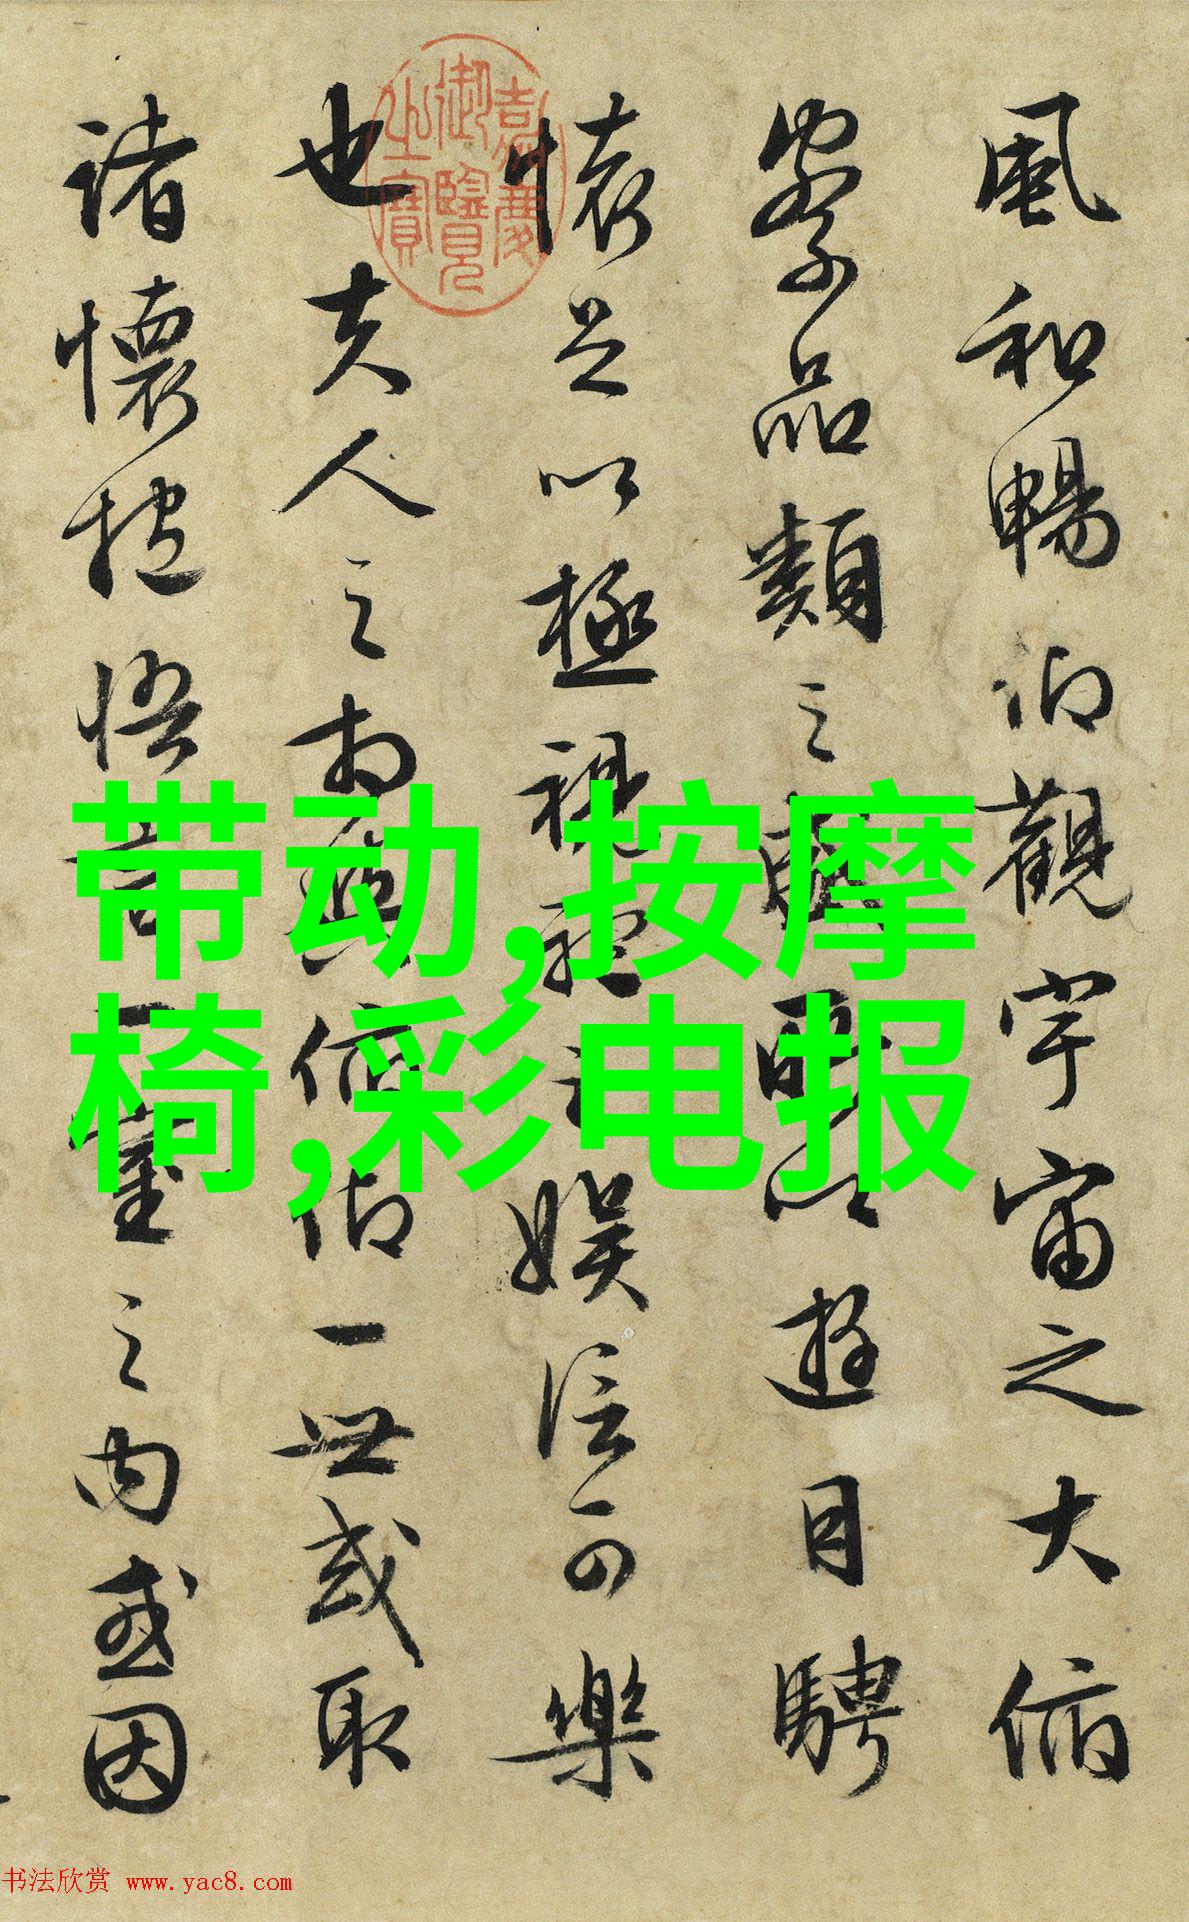 風和暢仰觀宇宙之大俯
察品類之盛所以遊目騁
懷足以極視聽之娛信可樂
也夫人之相與俯仰一世或取
諸懷抱悟言一室之內或因
嘉慶
御覽
之寶
带动,按摩
椅,彩电报
书法欣赏 www.yac8.com